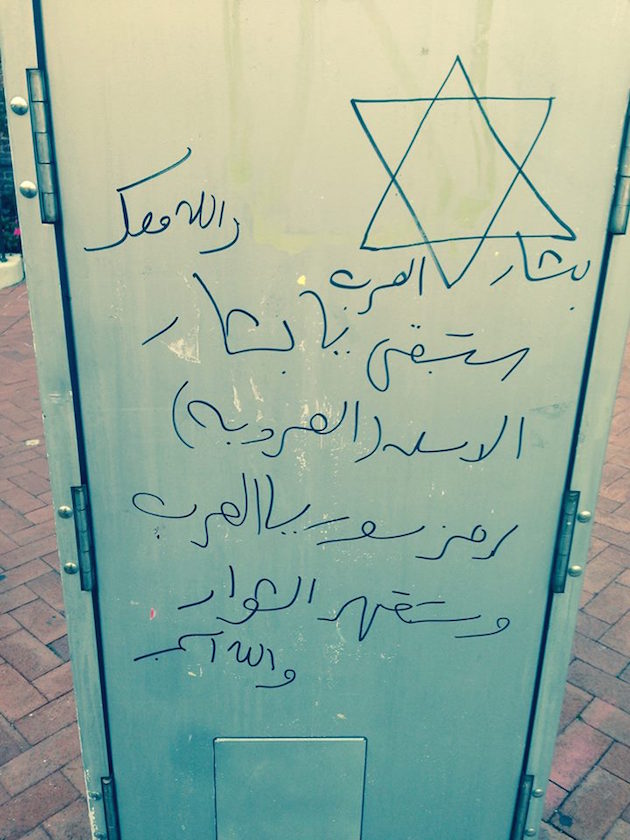 والله معك
بشار العرب
ستبقى يا بشار
الاسد (العروبة)
رمز سوريا العرب
وستقهر الثوار
والله